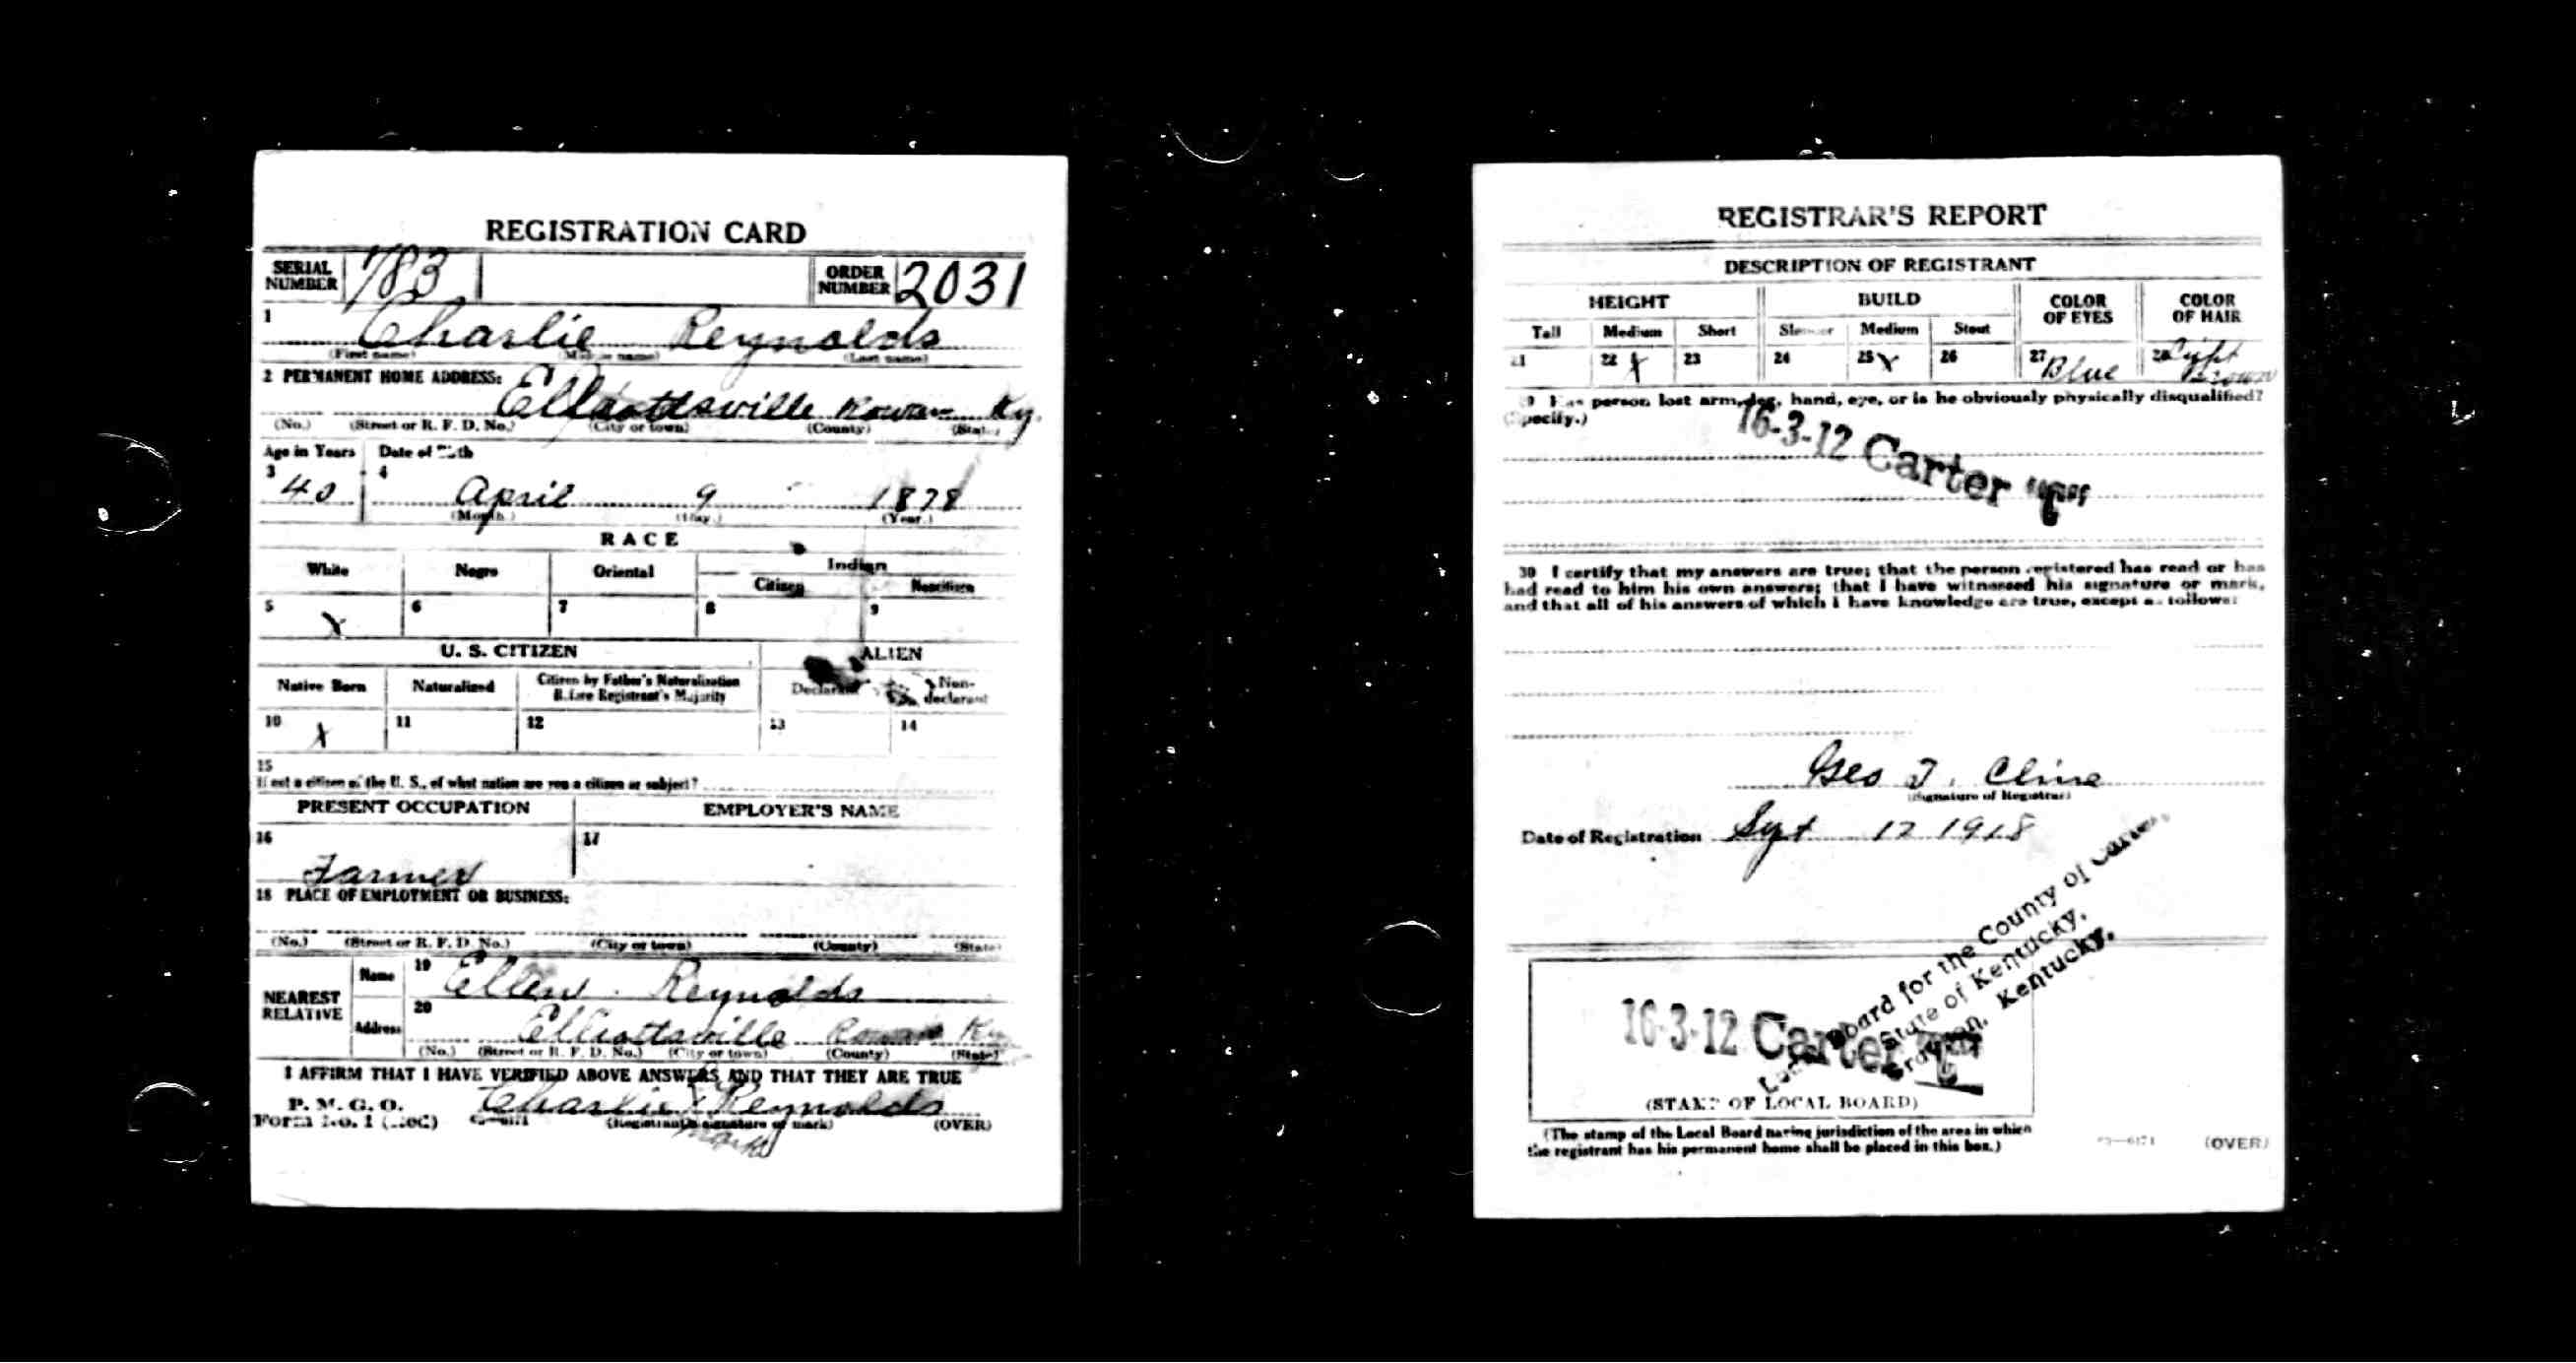 REGISTRATION CARD
SERIAL NUMBER 783 ORDER NUMBER 2031
1 Charlie Reynolds
(First name) (Middle name) (Last name)
2 PERMANENT HOME ADDRESS:
Elliottsville Rowan Ky.
(No.) (Street or R. F. D. No.) (City or town) (County) (State)
Age in Years Date of Birth
3 40 4 April 9 1878
(Month.) (Day.) (Year.)
RACE
White Negro Oriental Indian
Citizen Noncitizen
5 X 6 7 8 9
U. S. CITIZEN ALIEN
Native Born Naturalized Citizen by Father's Naturalization Before Registrant's Majority Declarant Non-declarant
10 X 11 12 13 14
15
If not a citizen of the U. S., of what nation are you a citizen or subject?
PRESENT OCCUPATION EMPLOYER'S NAME
16 Farmer 17
18 PLACE OF EMPLOYMENT OR BUSINESS:
(No.) (Street or R. F. D. No.) (City or town) (County) (State)
NEAREST RELATIVE Name 19 Ellen Reynolds
Address 20 Elliottsville Rowan Ky
(No.) (Street or R. F. D. No.) (City or town) (County) (State)
I AFFIRM THAT I HAVE VERIFIED ABOVE ANSWERS AND THAT THEY ARE TRUE
P. M. G. O.
Form No. 1 (Red) Charlie X Reynolds
(Registrant's signature or mark) (OVER)
mark
REGISTRAR'S REPORT
DESCRIPTION OF REGISTRANT
HEIGHT BUILD COLOR OF EYES COLOR OF HAIR
Tall Medium Short Slender Medium Stout
21 22 X 23 24 25 X 26 27 Blue 28 Light Brown
29 Has person lost arm, leg, hand, eye, or is he obviously physically disqualified?
(Specify.)
16-3-12 Carter
30 I certify that my answers are true; that the person registered has read or has
had read to him his own answers; that I have witnessed his signature or mark,
and that all of his answers of which I have knowledge are true, except as follows:
Geo T. Cline
(Signature of Registrar)
Date of Registration Sept 12 1918
Local Board for the County of Carter,
State of Kentucky,
Grayson, Kentucky.
16-3-12 Carter
(STAMP OF LOCAL BOARD)
(The stamp of the Local Board having jurisdiction of the area in which
the registrant has his permanent home shall be placed in this box.)
(OVER)